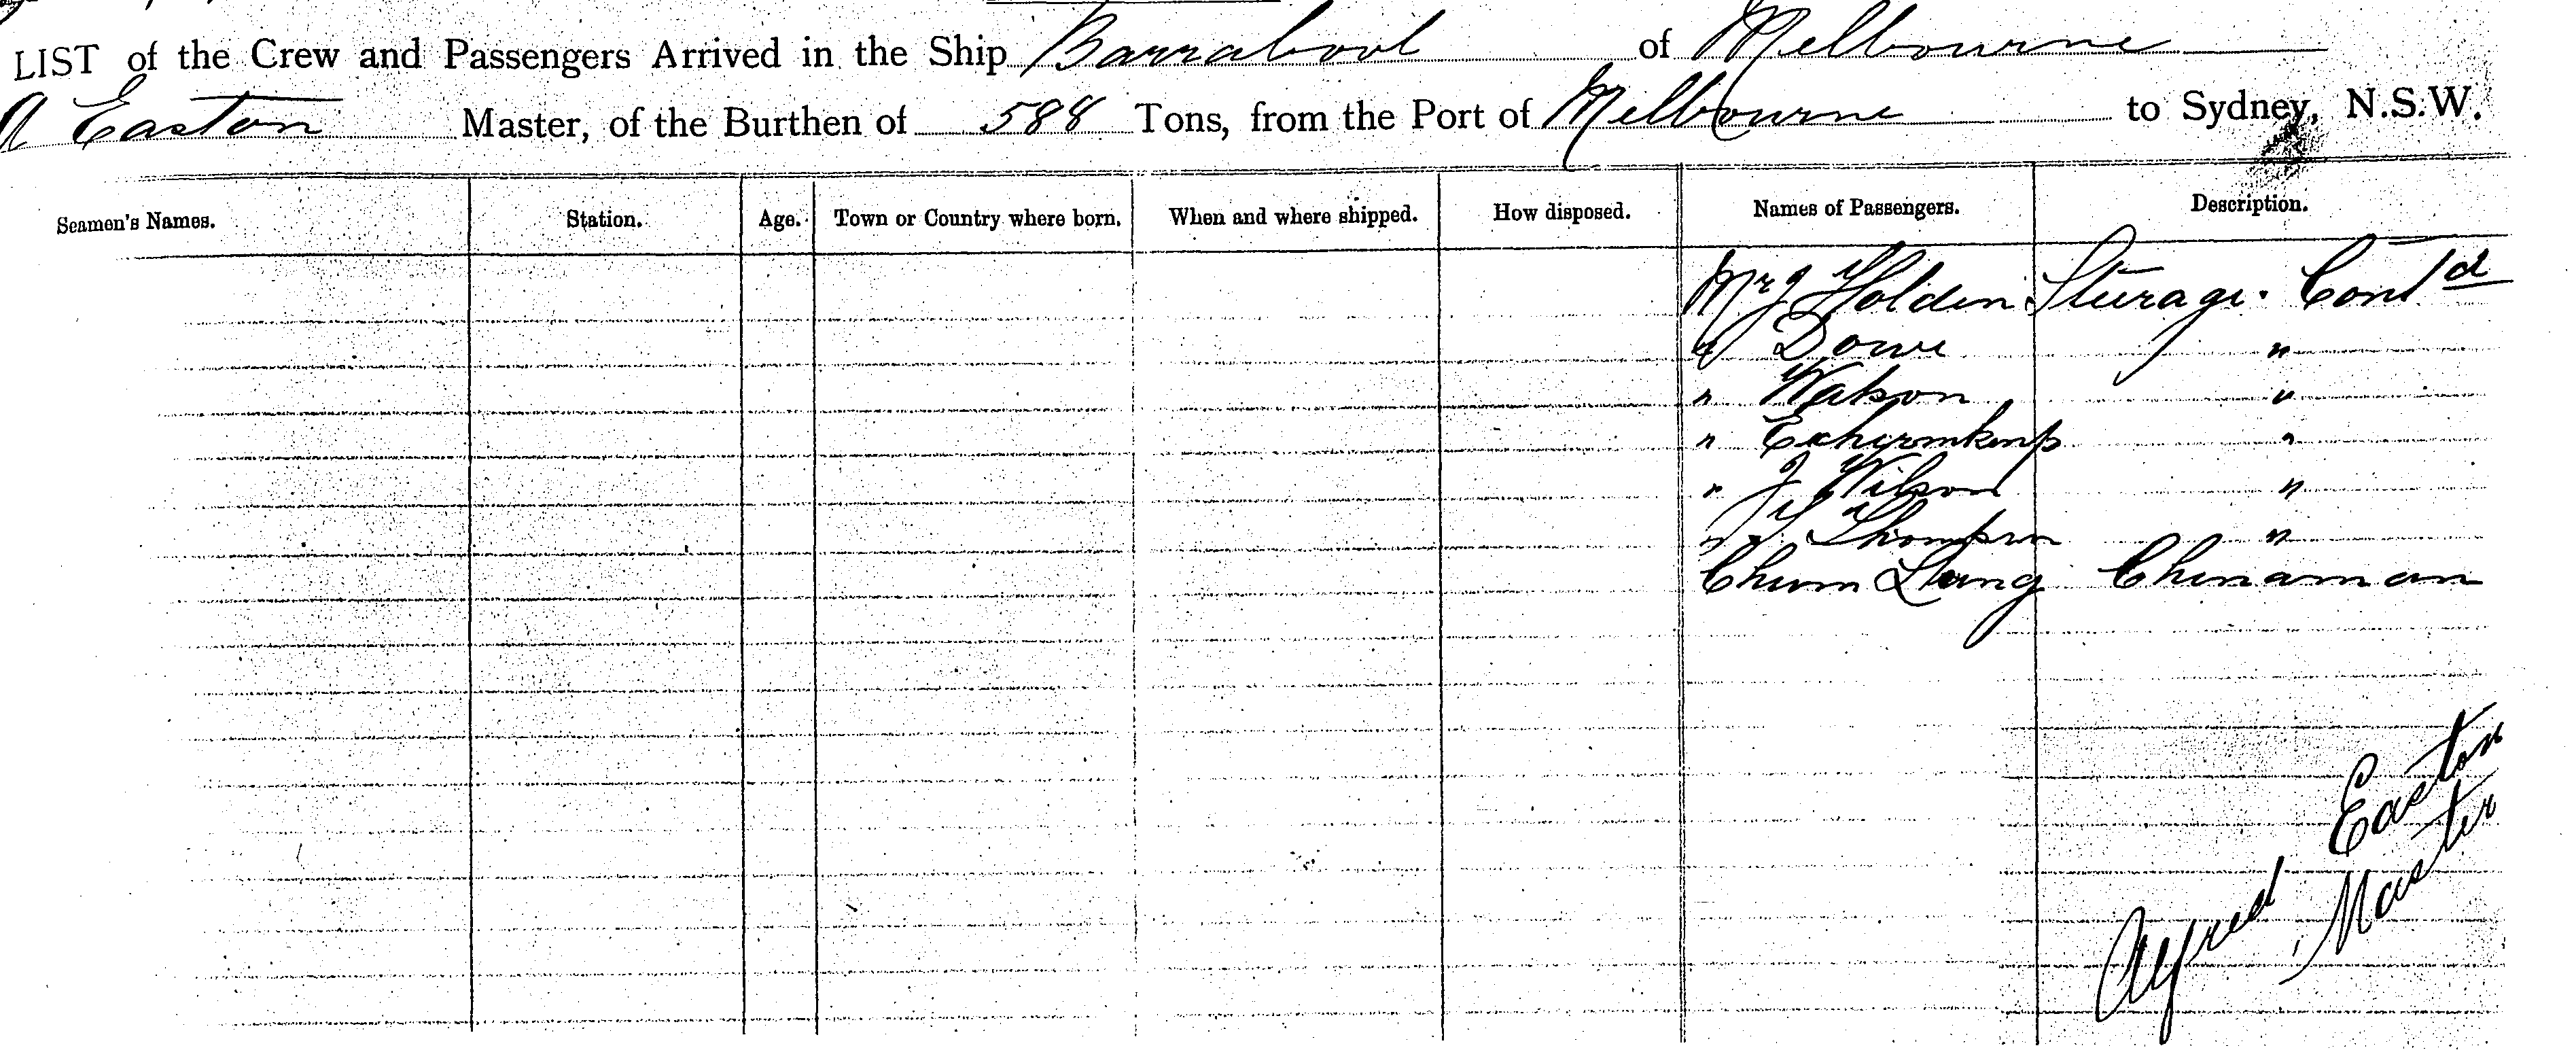 LIST of the Crew and Passengers Arrived in the Ship Barrabool of Melbourne
A Easton Master, of the Burthen of 588 Tons, from the Port of Melbourne to Sydney, N.S.W.
Seamen's Names. Station. Age. Town or Country where born. When and where shipped. How disposed. Names of Passengers. Description.
Mr J Holden Sturage. Cont'd
" Dowe "
" Watson "
" "
" J Wilson "
" Thompson "
Chum Chinaman
Alfred Easton
Master